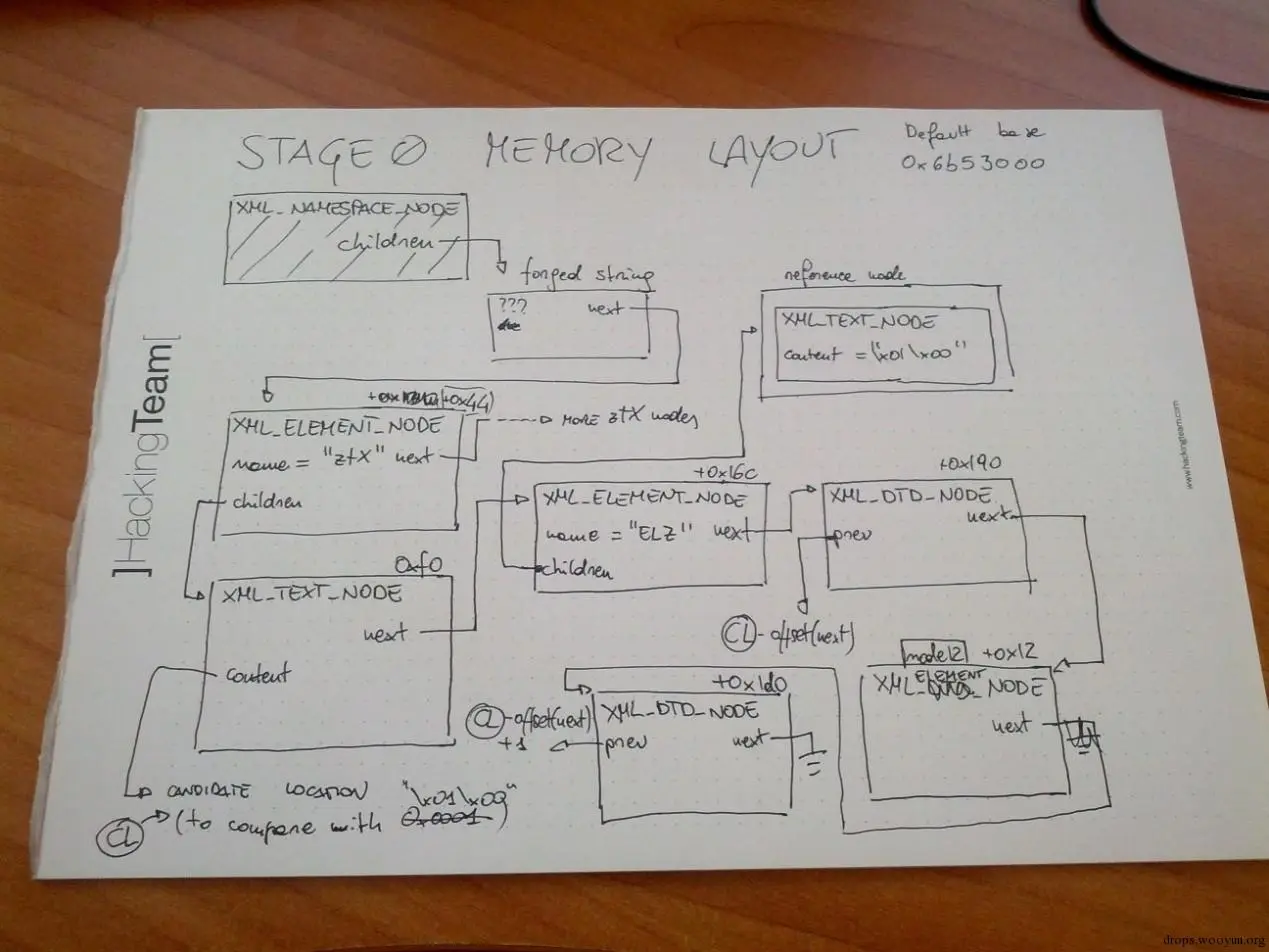 STAGE 0 MEMORY LAYOUT
Default base
0x6b53000
XML_NAMESPACE_NODE
children
forged string
???
next
reference node
XML_TEXT_NODE
content = "\x01\x00"
(+0x44)
XML_ELEMENT_NODE
name = "ztX" next
children
MORE ztX nodes
+0x16c
XML_ELEMENT_NODE
name = "ELZ" next
children
+0x190
XML_DTD_NODE
next
prev
CL - offset(next)
0xf0
XML_TEXT_NODE
next
content
node12 +0x12
ELEMENT
XML_ _NODE
next
+0x1d0
XML_DTD_NODE
prev next
CL - offset(next)
+1
CANDIDATE LOCATION "\x01\x00"
CL (to compare with 0x0001)
]HackingTeam[
www.hackingteam.com
drops.wooyun.org